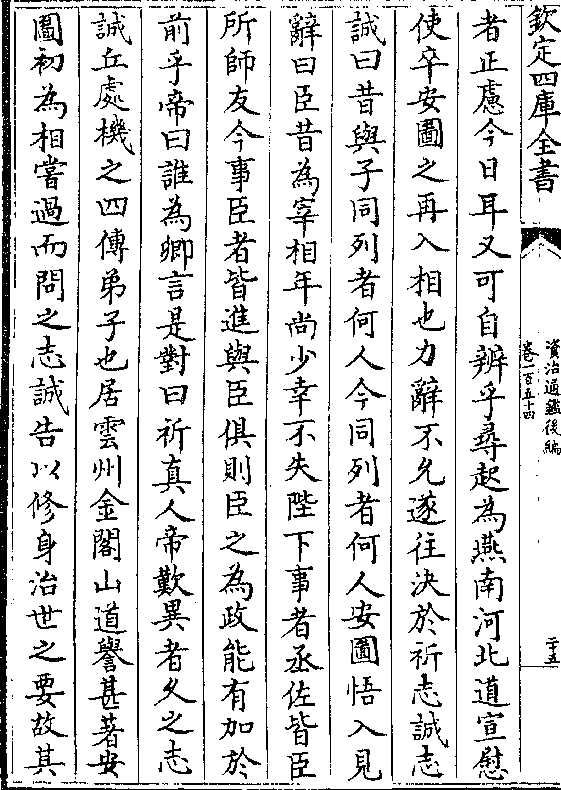 欽定四庫全書
資治通鑑後編
卷一百五十四
二十五
者正慮今日耳又可自辨乎尋起為燕南河北道宣慰
使卒安圖之再入相也力辭不允遂往決於祈志誠志
誠曰昔與子同列者何人今同列者何人安圖悟入見
辭曰臣昔為宰相年尚少幸不失陛下事者丞佐皆臣
所師友今事臣者皆進與臣俱則臣之為政能有加於
前乎帝曰誰為卿言是對曰祈真人帝歎異者久之志
誠丘處機之四傳弟子也居雲州金閣山道譽甚著安
圖初為相嘗過而問之志誠告以修身治世之要故其